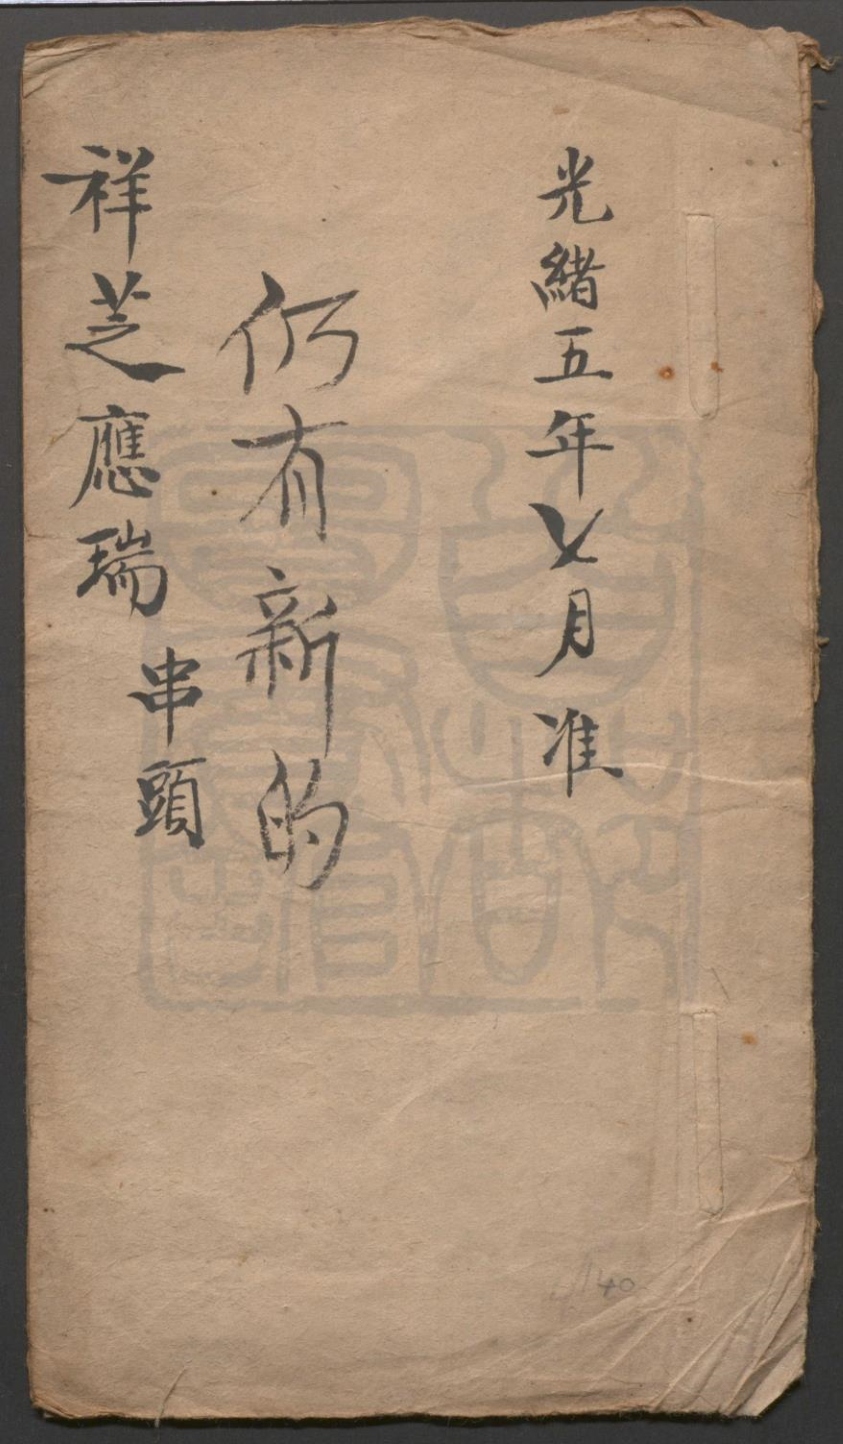 光緒五年七月准
仍有新的
祥芝應瑞
串頭
40